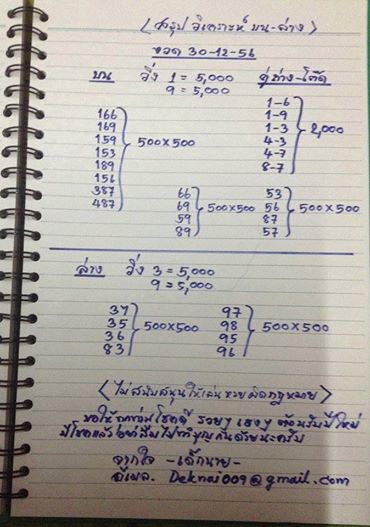 (สรุป วิเคราะห์ บน-ล่าง)
งวด 30-12-56
บน วิ่ง 1 = 5,000 คู่ถ่าง-โต๊ด
9 = 5,000
1-6
1-9
1-3
4-3
4-7
8-7
2,000
166
169
159
153
189
156
387
487
500x500
66
69
59
89
500x500
53
56
87
57
500x500
ล่าง วิ่ง 3 = 5,000
9 = 5,000
37
35
36
83
500x500
97
98
95
96
500x500
(ไม่สนับสนุนให้เล่นหวยผิดกฎหมาย)
ขอให้ทุกท่านโชคดี รวยๆ เฮงๆ ต้อนรับปีใหม่
มีโชคแล้วอย่าลืมไปทำบุญกันด้วยนะครับ
จากใจ -เด็กนาย-
Deknai009@gmail.com